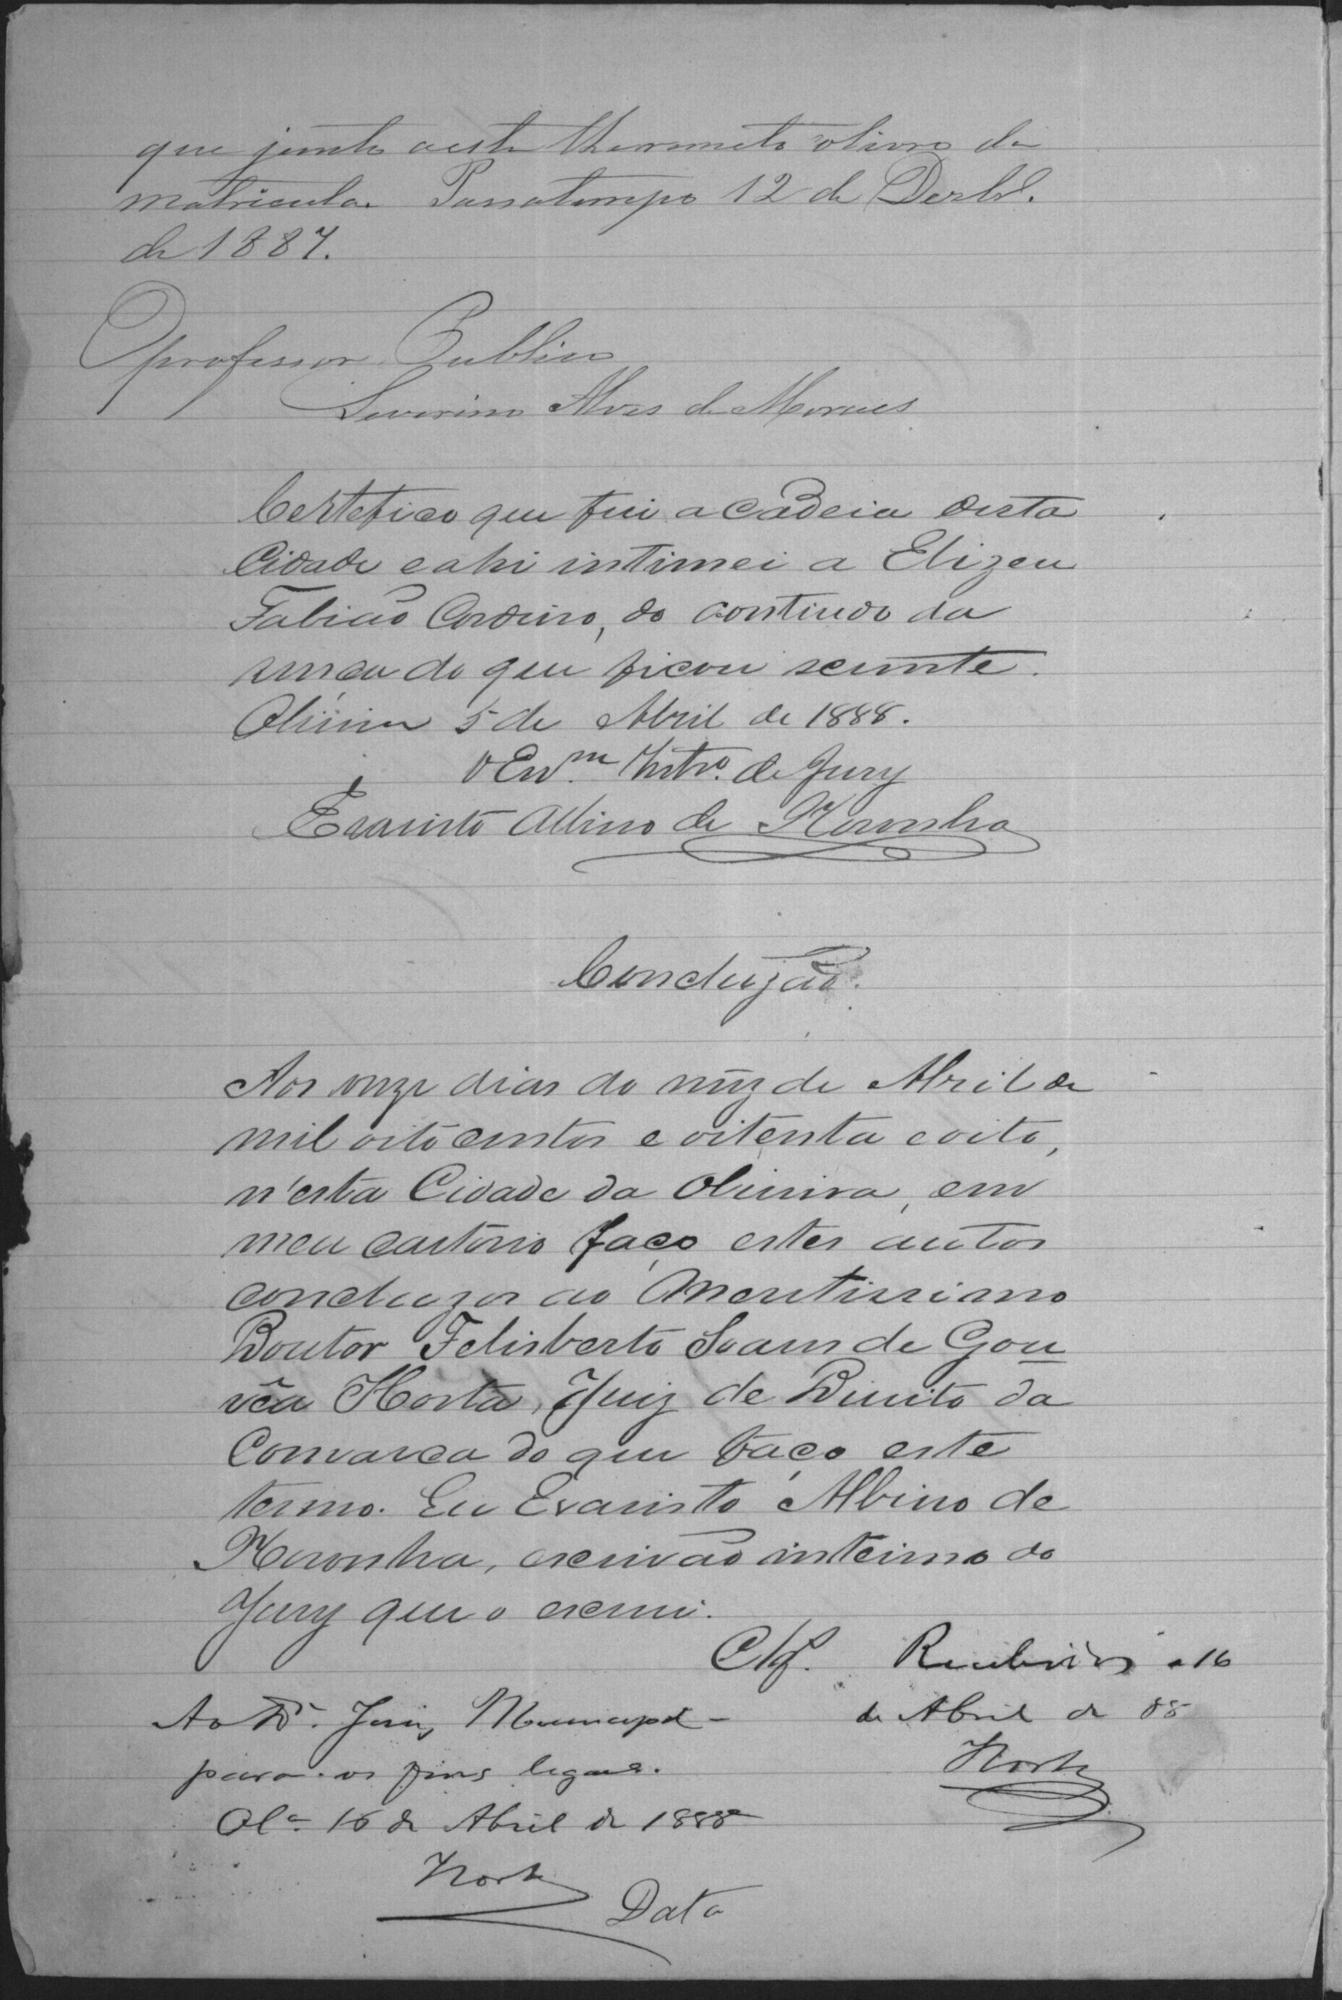 que junto a este lhe remeto o livro da
matricula. Passatempo 12 de Dezbr.
de 1887.
O professor Publico
Severino Alves de Moraes
Certefico que fui a cadeia desta
Cidade e ahi intimei a Elizeu
Fabião Cordeiro, do contiudo da
do que ficou sciente.
Oliveira 5 de Abril de 1888.
O Esvm. Intro. de Jury
Evaristo Albino de Noronha
Concluzão.
Aos onze dias do mez de Abril de
mil oito centos e oitenta e oito,
n'esta Cidade da Oliveira, em
meu cartorio faço estes autos
concluzos ao Meritissimo
Doutor Felisberto Soares de Gou
vêa Horta, Juiz de Direito da
Comarca do que faço este
termo. Eu Evaristo Albino de
Noronha, escrivão interino do
Jury que o escrevi.
Clz. Recebidos a 16
de Abril de 88
Horta
Ao Dr. Juiz Municipal
para os fins legaes.
Ola. 16 de Abril de 1888
Horta
Data